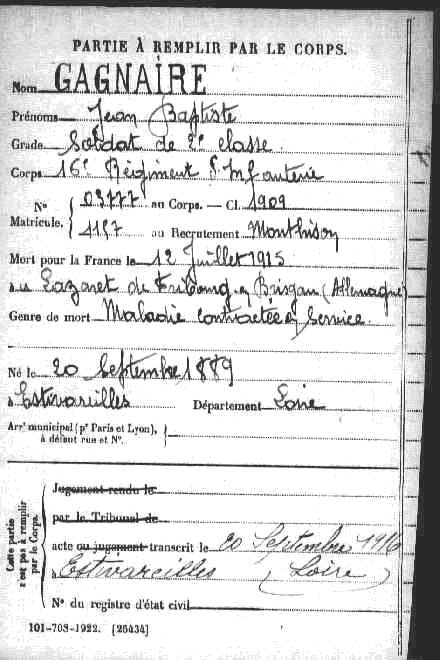 PARTIE À REMPLIR PAR LE CORPS.
Nom GAGNAIRE
Prénoms Jean Baptiste
Grade Soldat de 2e classe
Corps 16e Régiment d'Infanterie
Nº 03777 au Corps. — Cl. 1909
Matricule. 1157 au Recrutement Montbrison
Mort pour la France le 12 Juillet 1915
au Lazaret de Fribourg en Brisgau (Allemagne)
Genre de mort Maladie contractée en Service.
Né le 20 Septembre 1889
à Estivareilles Département Loire
Arrt municipal (pr Paris et Lyon),
à défaut rue et Nº.
Cette partie
n'est pas à remplir
par le Corps.
Jugement rendu le
par le Tribunal de
acte ou jugement transcrit le 20 Septembre 1916
à Estivareilles (Loire)
Nº du registre d'état civil
101-708-1922. [26434]